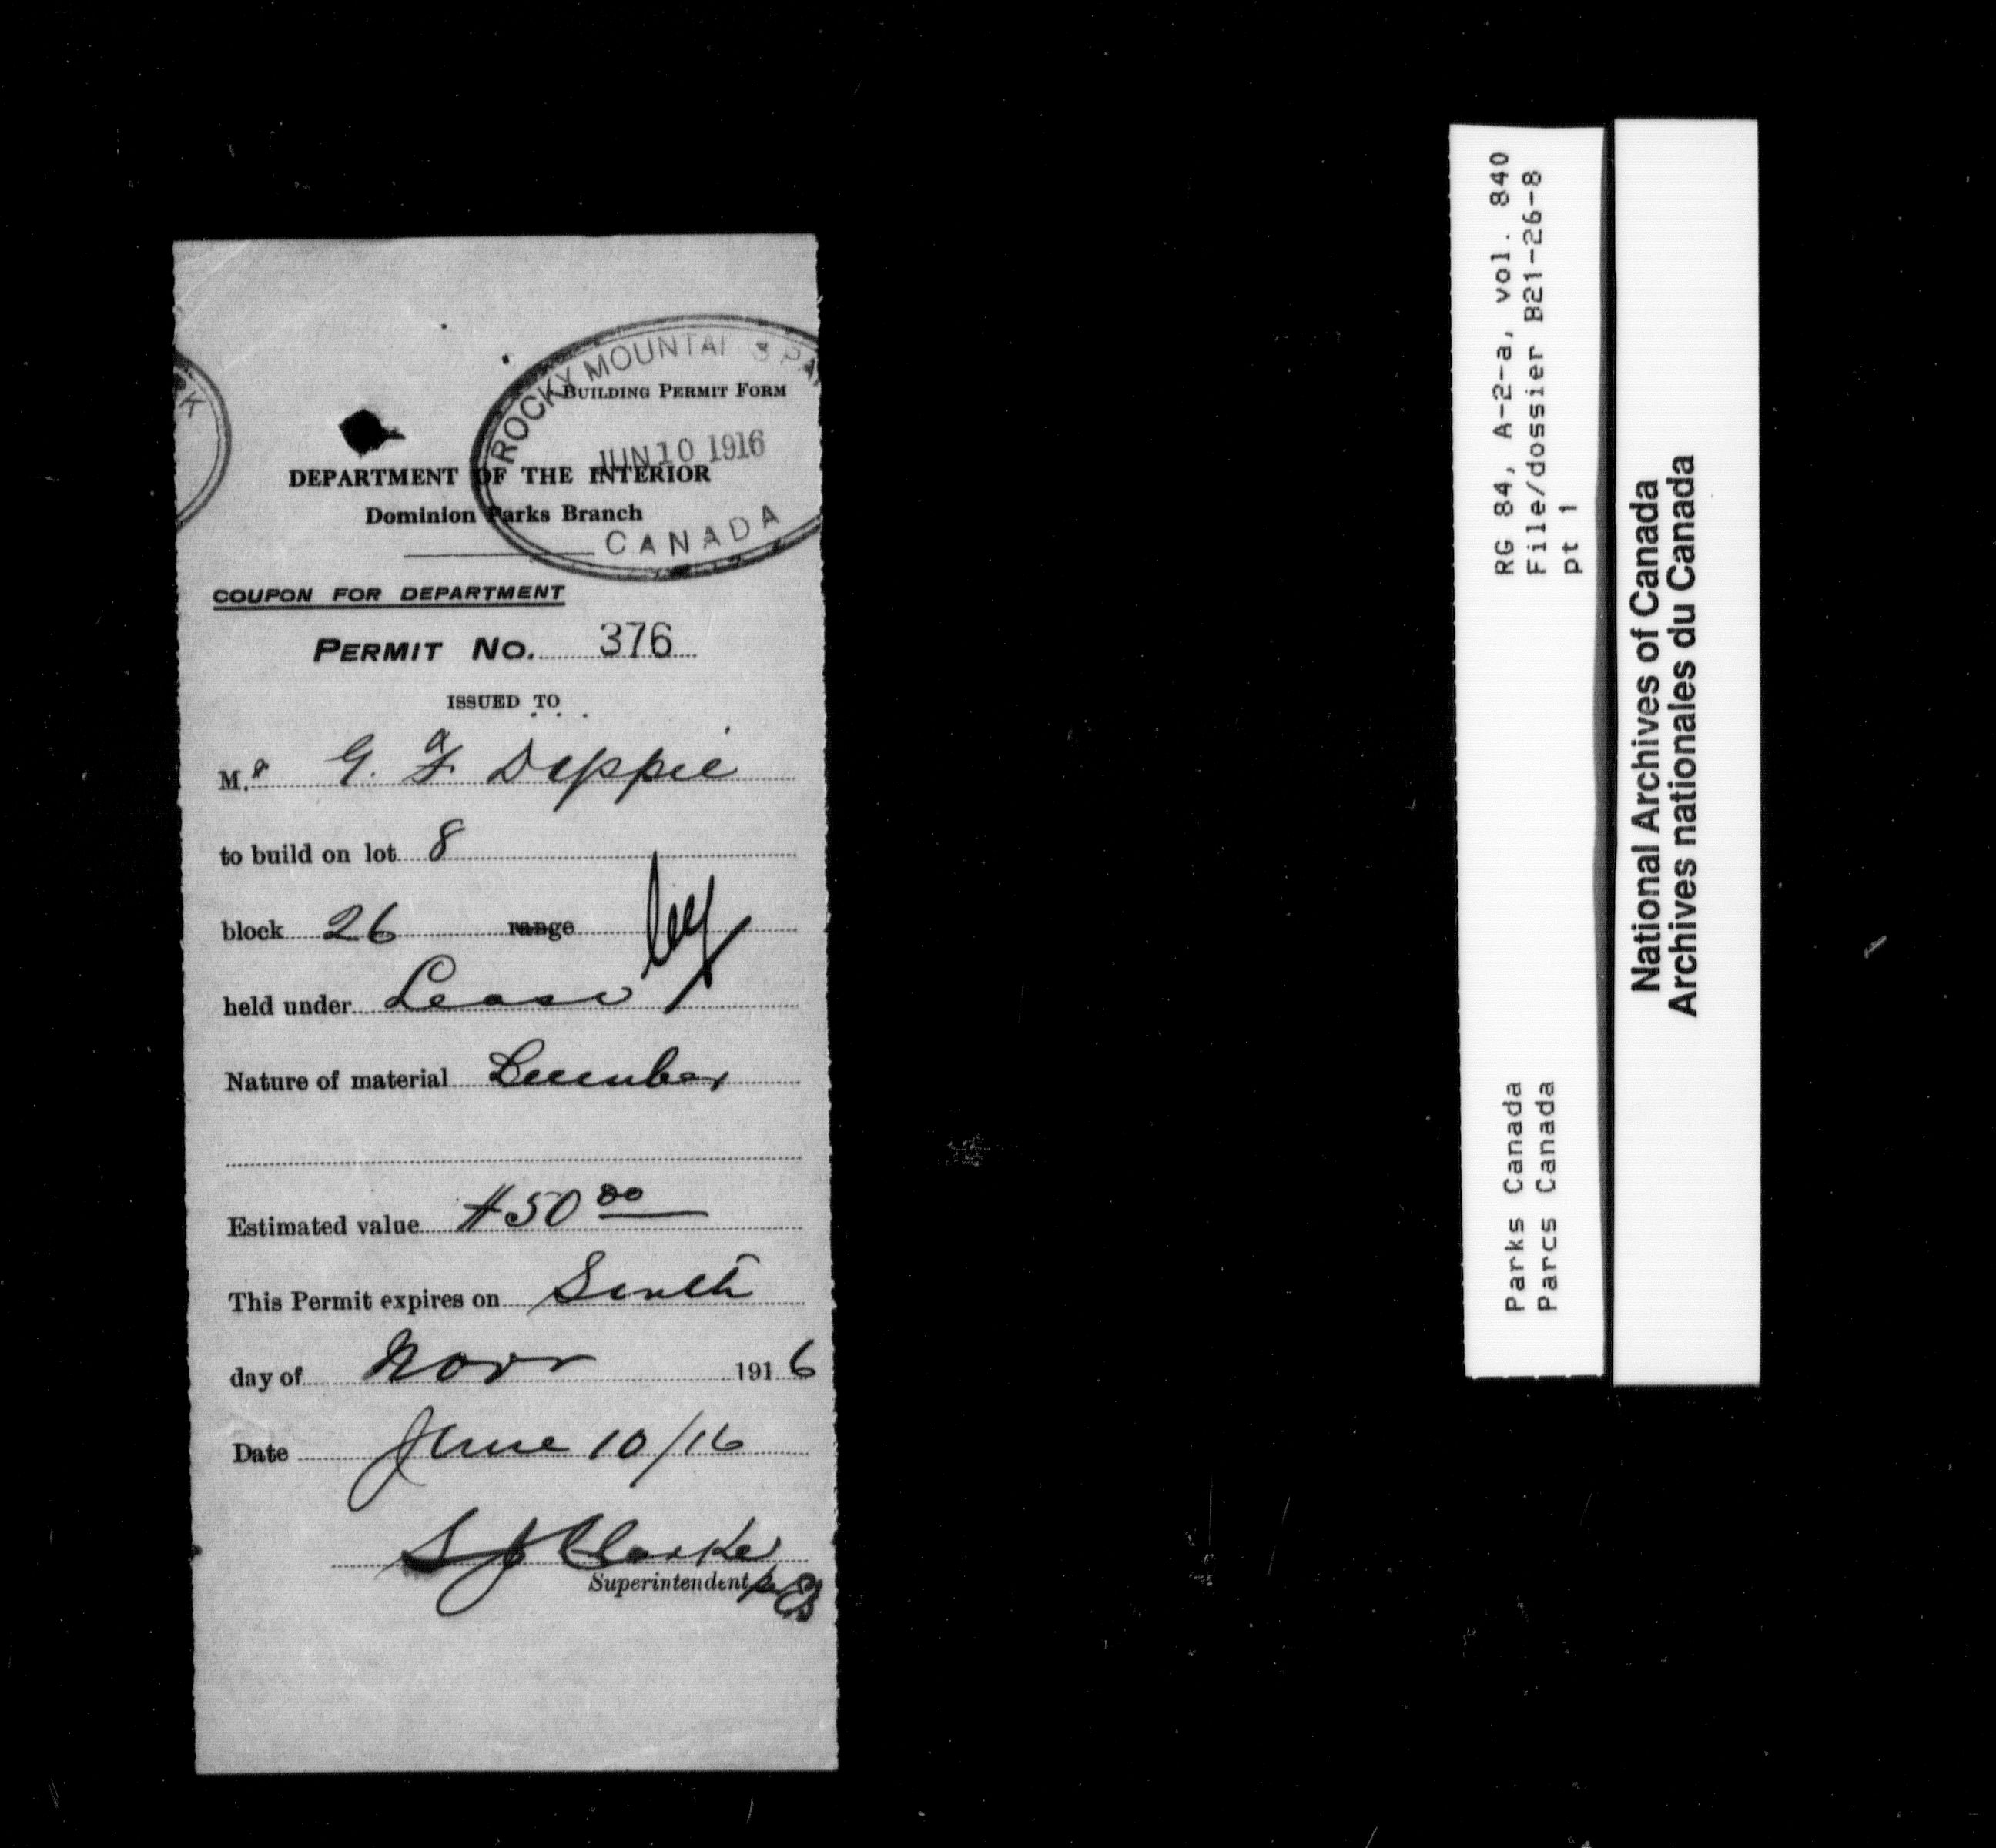 ROCKY MOUNTAI S PA
BUILDING PERMIT FORM
JUN 10 1916
RK
DEPARTMENT OF THE INTERIOR
Dominion Parks Branch
CANADA
COUPON FOR DEPARTMENT
PERMIT No. 376
ISSUED TO
Mr G. a F. Dippie
to build on lot 8
block 26 range
held under Lease
Nature of material Lumber
Estimated value $50 00
This Permit expires on
day of Novr 1916
Date June 10/16
S J Clarke
Superintendent
RG 84, A-2-a, vol. 840
File/dossier B21-26-8
pt 1
Parks Canada
Parcs Canada
National Archives of Canada
Archives nationales du Canada